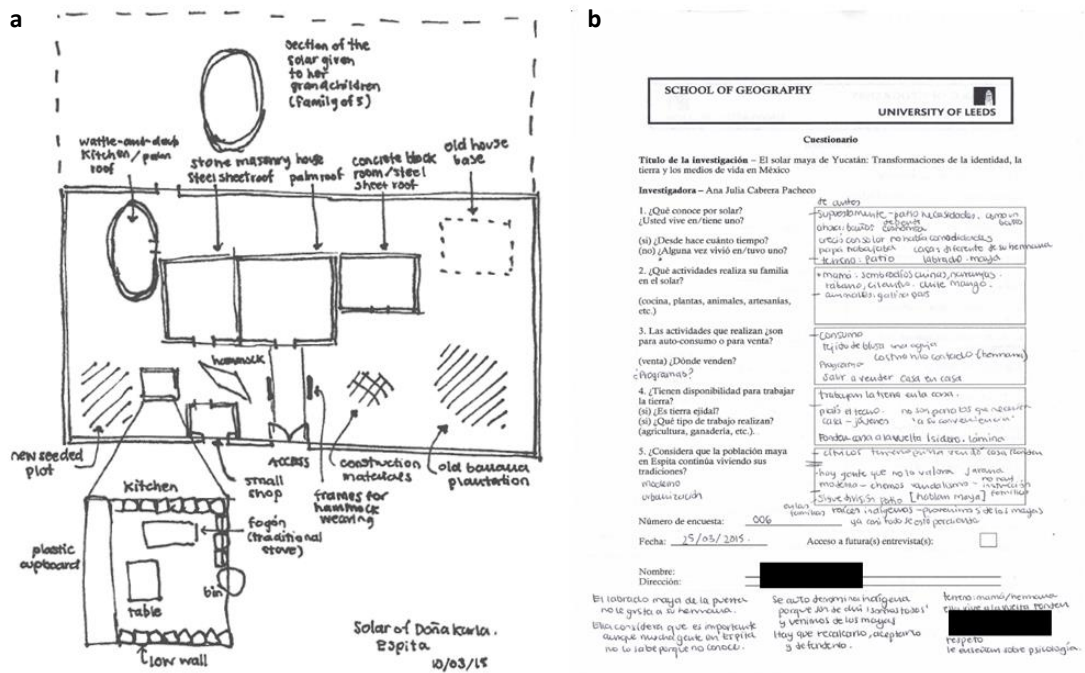 a
section of the
solar given
to her
grandchildren
(family of 5)
wattle-and-daub
kitchen/palm
roof
stone masonry house
steel sheet roof
palm roof
concrete block
room/steel
sheet roof
old house
base
hammock
new seeded
plot
small
shop
ACCESS
frames for
hammock
weaving
construction
materials
old banana
plantation
kitchen
fogón
(traditional
stove)
plastic
cupboard
table
bin
low wall
Solar of Doña Karla.
Espita
10/03/15
b
SCHOOL OF GEOGRAPHY
UNIVERSITY OF LEEDS
Cuestionario
Título de la investigación – El solar maya de Yucatán: Transformaciones de la identidad, la
tierra y los medios de vida en México
Investigadora – Ana Julia Cabrera Pacheco
1. ¿Qué conoce por solar?
¿Usted vive en/tiene uno?
(si) ¿Desde hace cuánto tiempo?
(no) ¿Alguna vez vivió en/tuvo uno?
de antes
Supuestamente - patio necesidades. como un
baño
ahora: baños
creció con solar no había comodidades
papá trabajaba casa diferente de su hermana
terreno: patio labrado - maya
2. ¿Qué actividades realiza su familia
en el solar?
(cocina, plantas, animales, artesanías,
etc.)
mamá: sembradíos chinas, naranjas.
rábano, cilantro. chile mango.
animales: gallina pavo
3. Las actividades que realizan ¿son
para auto-consumo o para venta?
(venta) ¿Dónde venden?
¿Programas?
consumo
tejido de blusa una aguja
costura hilo contado (hermana)
Programa
salir a vender casa en casa
4. ¿Tienen disponibilidad para trabajar
la tierra?
(si) ¿Es tierra ejidal?
(si) ¿Qué tipo de trabajo realizan?
(agricultura, ganadería, etc.).
trabajan la tierra en la casa.
no son para los que necesitan
casa - jóvenes "a su conveniencia"
a la vuelta Isidero. lámina
5. ¿Considera que la población maya
en Espita continúa viviendo sus
tradiciones?
moderno
urbanización
hay gente que no lo valora
moderno - chemos vandalismo - no hay
instrucción
familias
sigue división patio [hablan maya]
en las
familias raíces indígenas - provenimos de los mayas
ya casi todo se está perdiendo
Número de encuesta: 006
Fecha: 25/03/2015. Acceso a futura(s) entrevista(s):
Nombre:
Dirección:
El labrado maya de la puerta
no le gusta a su hermana.
Ella considera que es importante
aunque mucha gente en Espita
no lo sabe porque no conoce.
Se auto denomina indígena
porque son de aquí "somos todos"
y venimos de los mayas
Hay que recalcarlo, aceptarlo
y defenderlo.
terreno: mamá/hermana
respeto
le enseñan sobre psicología.